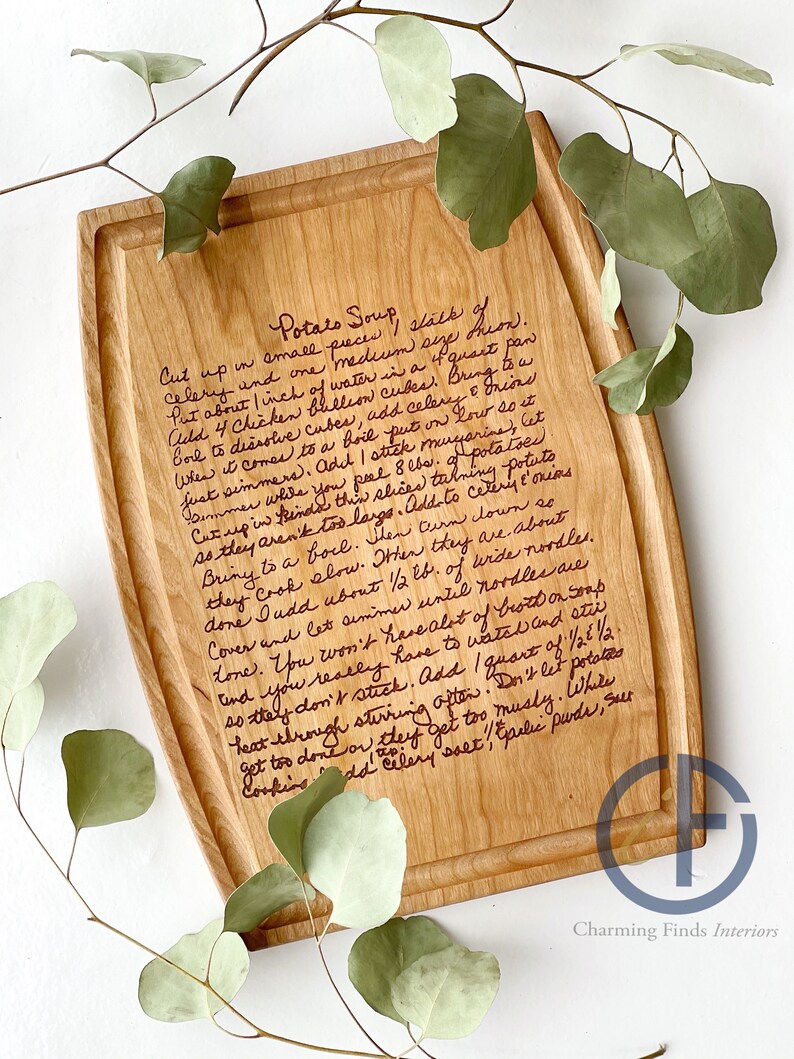 Potato Soup
Cut up in small pieces 1 stalk of
celery and one medium size onion.
Put about 1 inch of water in a 4 quart pan
Add 4 chicken bullion cubes. Bring to a
boil to dissolve cubes, add celery & onions
When it comes to a boil put on low so it
just simmers. Add 1 stick margarine, let
simmer while you peel 8 lbs. of potatoes
Cut up in kinda thin slices turning potato
so they aren't too large. Add to celery & onions
Bring to a boil. Then turn down so
they cook slow. When they are about
done I add about 1/2 lb. of wide noodles.
Cover and let simmer until noodles are
done. You won't have alot of broth on soup
and you really have to watch and stir
so they don't stick. Add 1 quart of 1/2 & 1/2.
heat through stirring often. Don't let potatoes
get too done or they get too mushy. While
cooking add 1 tsp. celery salt, 1/4 garlic pwdr, salt
CF
Charming Finds Interiors